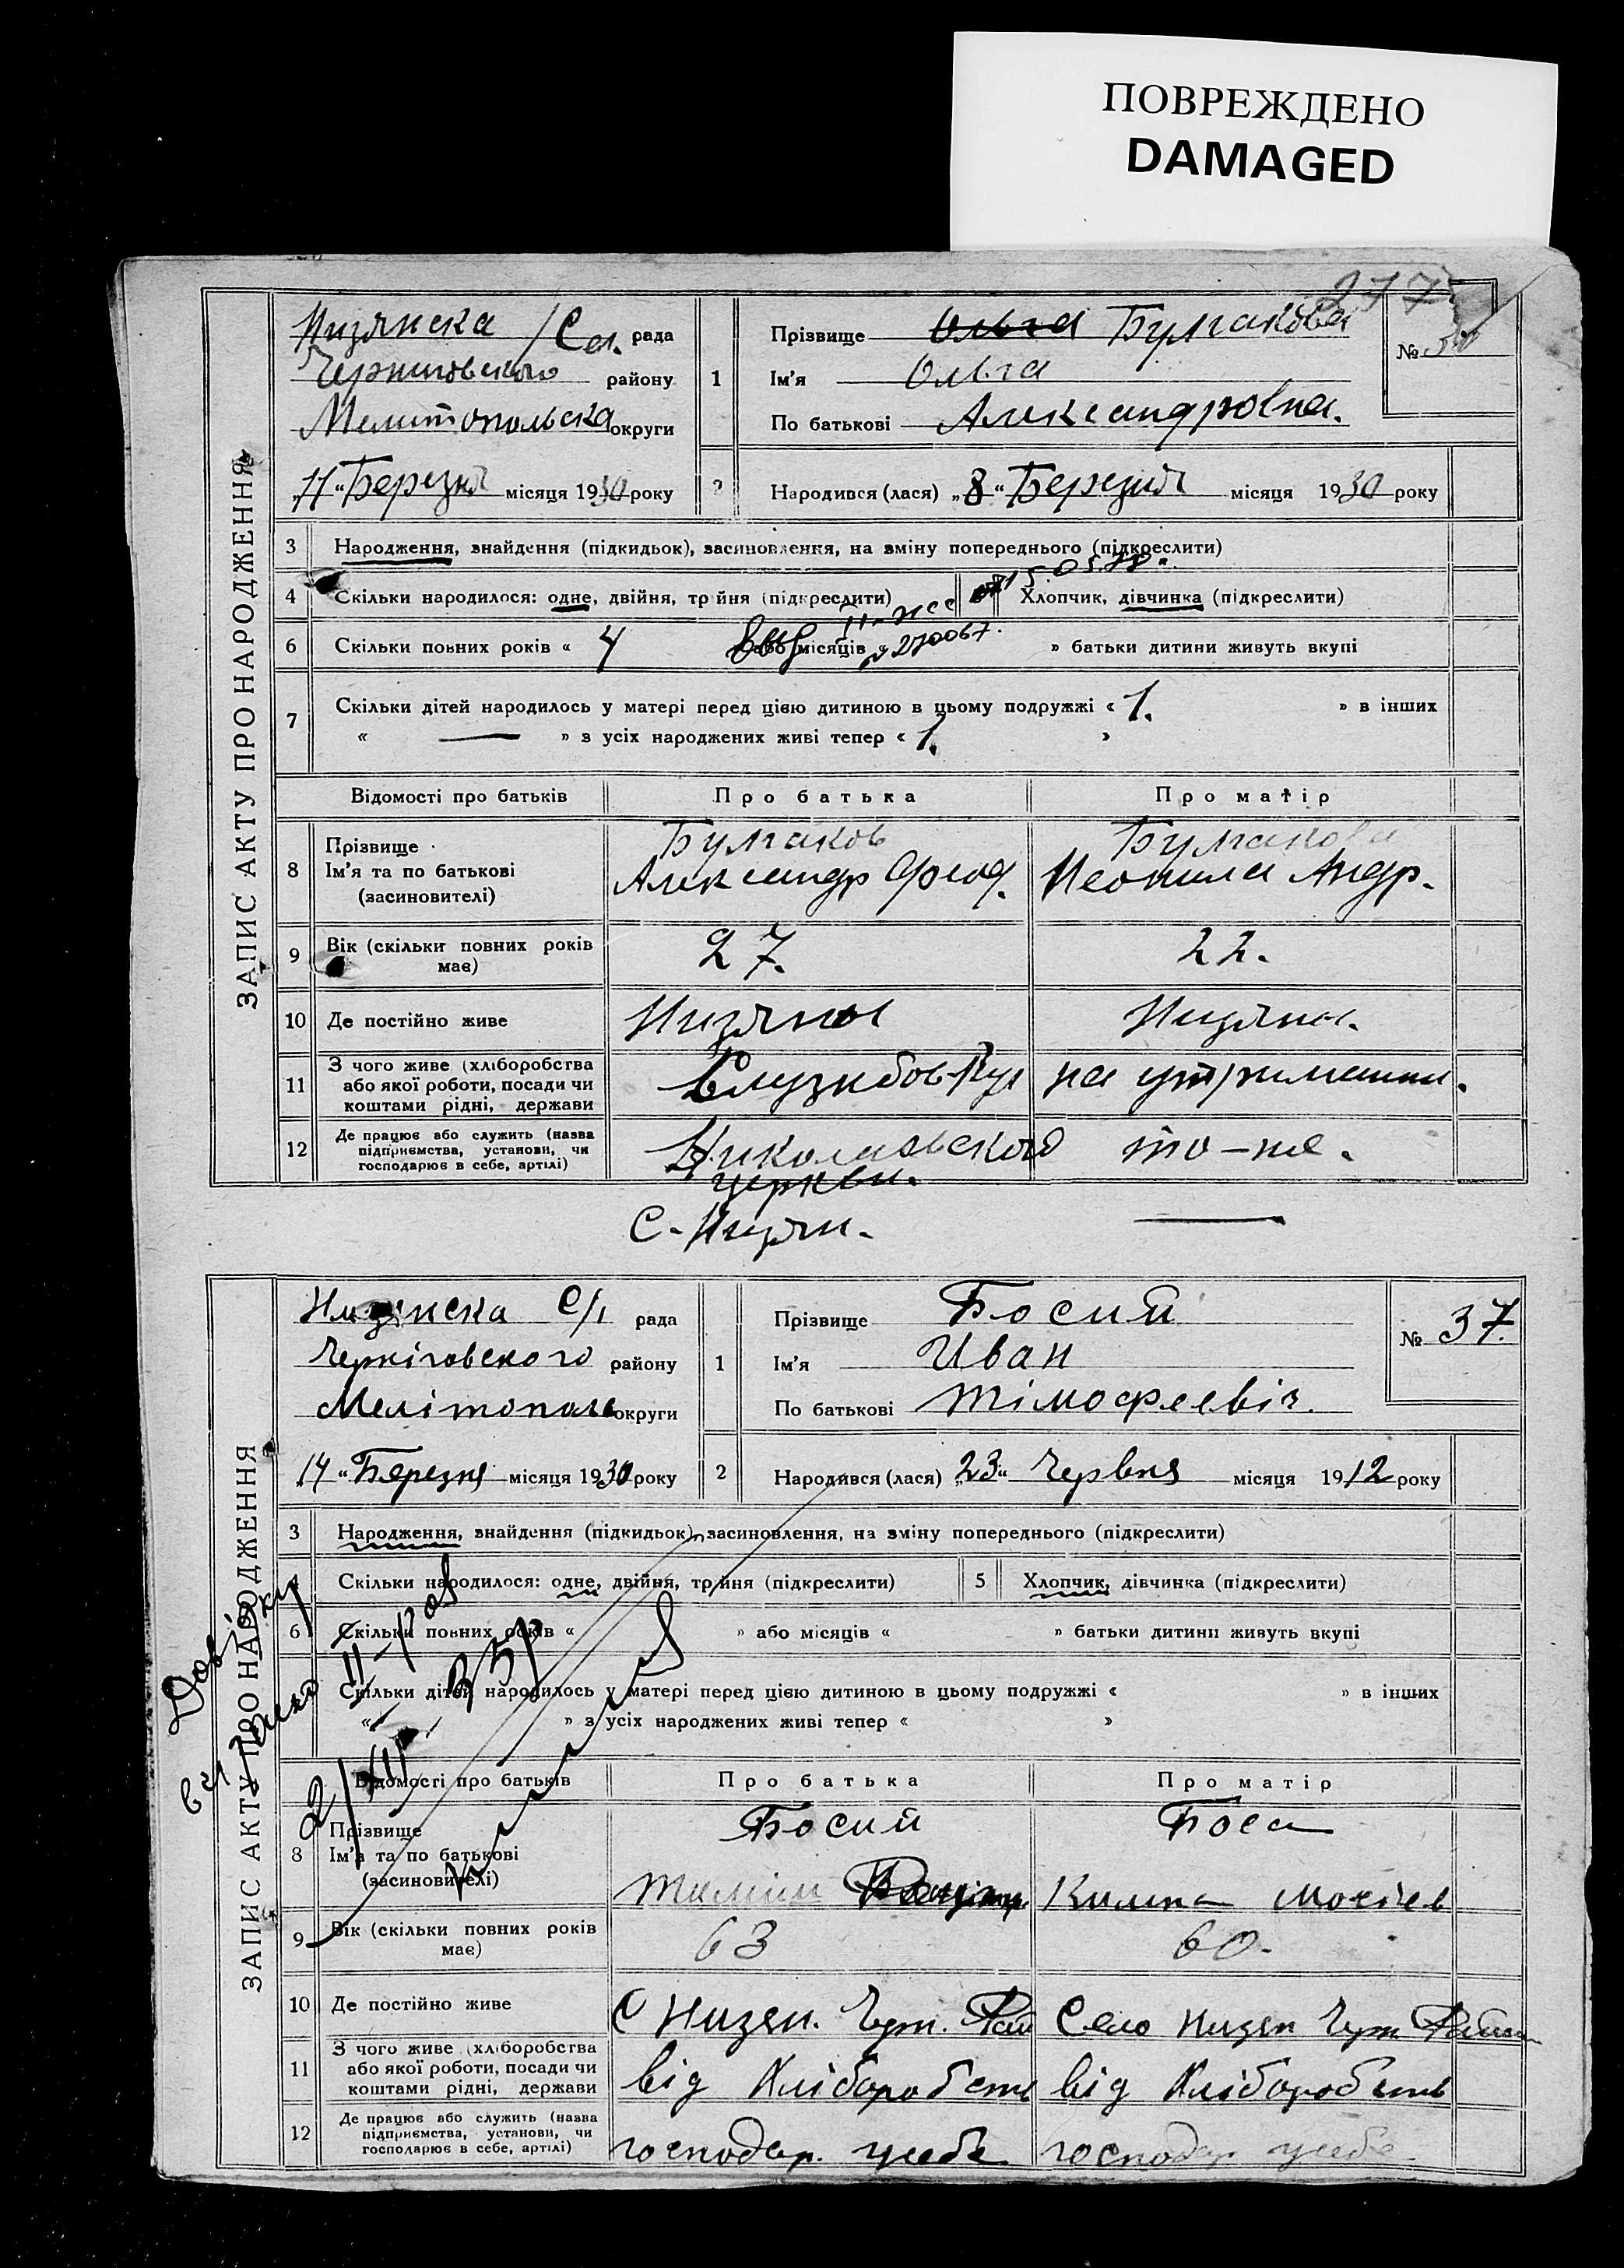 ПОВРЕЖДЕНО
DAMAGED
277
ЗАПИС АКТУ ПРО НАРОДЖЕННЯ
Низянска / Сел. рада
Черниговського району
Мелитопольска округи
„11“ Березня місяця 1930 року
1
Прізвище Ольга Булгакова
Ім'я Ольга
По батькові Александровна.
№
2
Народився (лася) „8“ Березня місяця 1930 року
3 Народження, знайдення (підкидьок), засиновлення, на зміну попереднього (підкреслити)
4 Скільки народилося: одне, двійня, трійня (підкреслити)
Хлопчик, дівчинка (підкреслити)
6 Скільки повних років « 4 або місяців « » батьки дитини живуть вкупі
270067.
7 Скільки дітей народилось у матері перед цією дитиною в цьому подружжі « 1. » в інших
« — » з усіх народжених живі тепер « 1. »
Відомості про батьків Про батька Про матір
8 Прізвище Булгаков Булгакова
Ім'я та по батькові Александр Феод. Неонила Андр.
(засиновителі)
9 Вік (скільки повних років має) 27. 22.
10 Де постійно живе Низяны Низяны.
11 З чого живе (хліборобства або якої роботи, посади чи коштами рідні, держави на утриманни.
12 Де працює або служить (назва підприємства, установи, чи господарює в себе, артілі) Николаевского то-не.
церкви.
С. Низян.
ЗАПИС АКТУ ПРО НАРОДЖЕННЯ
Низянска С/ рада
Черніговского району
Мелітополь округи
„14“ Березня місяця 1930 року
1
Прізвище Босий
Ім'я Иван
По батькові Тімофеевіч.
№ 37.
2
Народився (лася) „23“ Червня місяця 1912 року
3 Народження, знайдення (підкидьок), засиновлення, на зміну попереднього (підкреслити)
4 Скільки народилося: одне, двійня, трійня (підкреслити)
5 Хлопчик, дівчинка (підкреслити)
6 Скільки повних років « » або місяців « » батьки дитини живуть вкупі
Скільки дітей народилось у матері перед цією дитиною в цьому подружжі « » в інших
« » з усіх народжених живі тепер « »
Відомості про батьків Про батька Про матір
8 Прізвище Босий Боса
Ім'я та по батькові
(засиновителі)
9 Вік (скільки повних років має) 63 60.
10 Де постійно живе С Низян. Черн. Рай Село Низян Черн Район
11 З чого живе (хліборобства або якої роботи, посади чи коштами рідні, держави від Хліборобств від Хліборобств
12 Де працює або служить (назва підприємства, установи, чи господарює в себе, артілі) господар. у себе господар у себе.